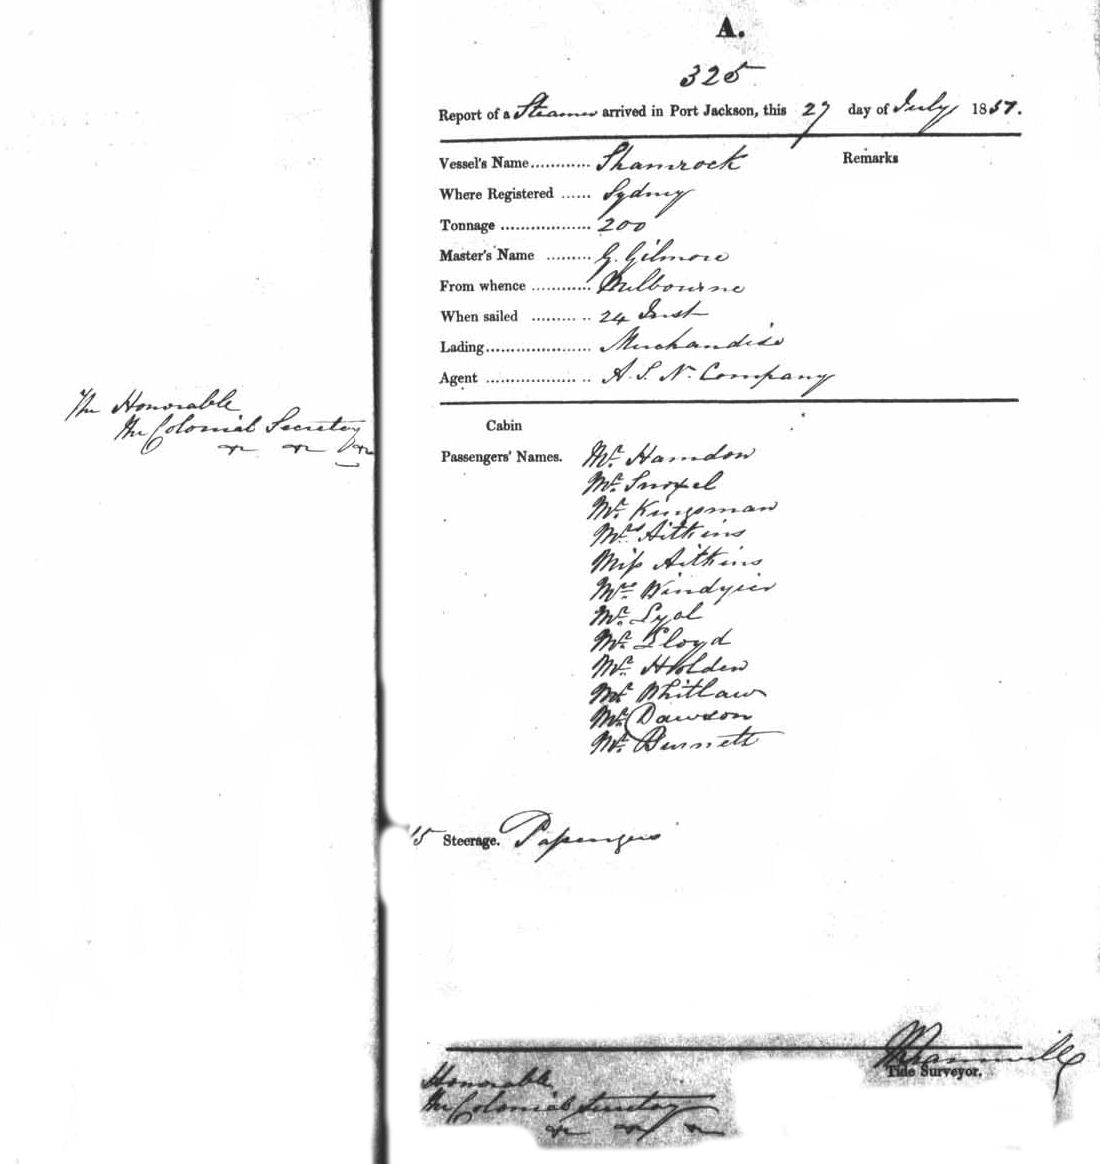 A.
325
Report of a Steamer arrived in Port Jackson, this 27 day of July 1851.
Vessel's Name............ Shamrock
Remarks
Where Registered ...... Sydney
Tonnage .................. 200
Master's Name ......... G. Gilmore
From whence ............ Melbourne
When sailed ......... .. 24 Inst
Lading..................... Merchandise
Agent .................. .. A. S. N. Company
The Honorable
the Colonial Secretary
Cabin
Passengers' Names. Mr. Hamdon
Mr. Snoxel
Mr. Kingsman
Mrs. Aitkins
Miss Aitkins
Mrs. Windyier
Mr. Lyol
Mr. Lloyd
Mr. Holden
Mr. Whitlaw
Mr. Dawson
Mr. Burnett
15 Steerage. Passengers
Tide Surveyor.
Honorable
the Colonial Secretary